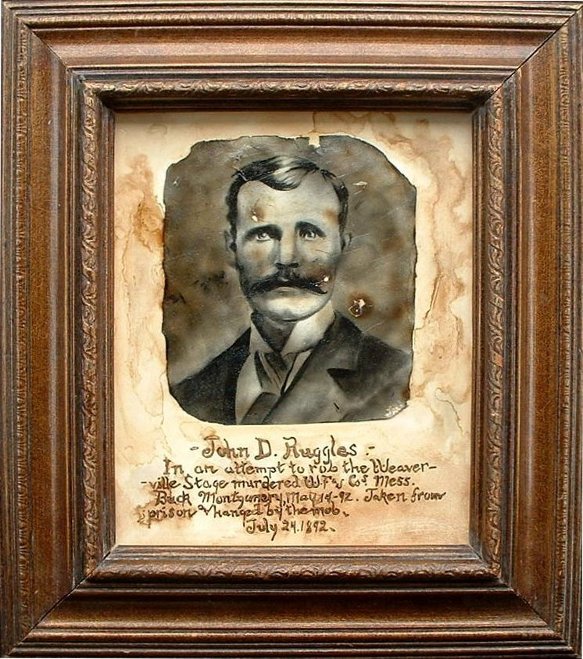 - John D. Ruggles -
In an attempt to rob the Weaver-
-ville Stage murdered W.F's Co's Mess.
Buck Montgomery, May 14-92. Taken from
prison & hanged by the mob.
July 24.1892.